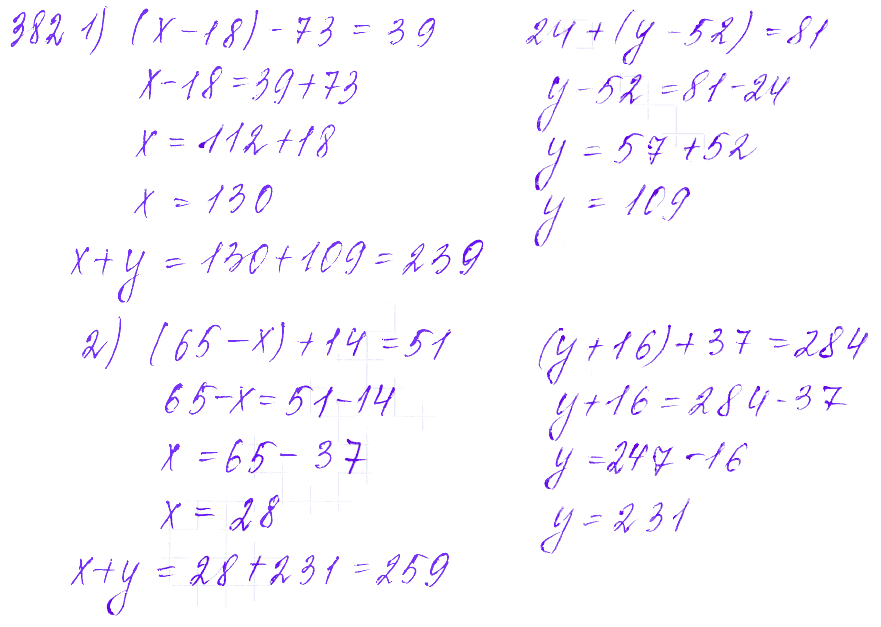 382 1) (x-18)-73=39 24+(y-52)=81
x-18=39+73 y-52=81-24
x=112+18 y=57+52
x=130 y=109
x+y=130+109=239
2) (65-x)+14=51 (y+16)+37=284
65-x=51-14 y+16=284-37
x=65-37 y=247-16
x=28 y=231
x+y=28+231=259